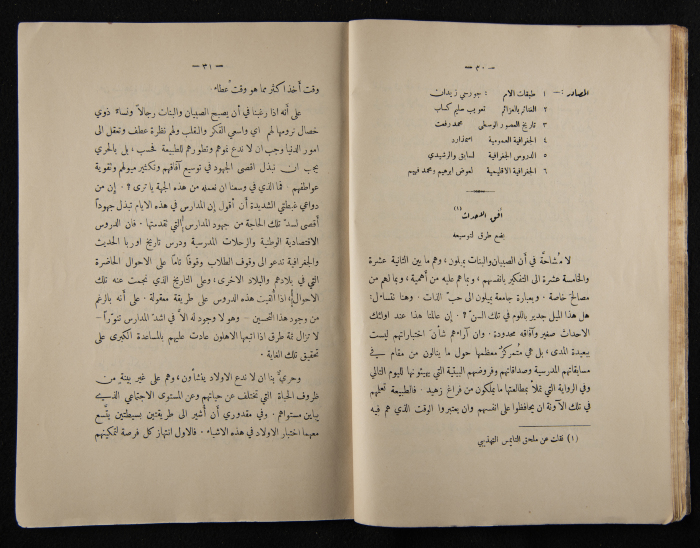 — ٣٠ —
المصادر :— ١ طبقات الامم : جورجي زيدان
٢ الغنائر بالعزائم تعريب سليم كساب
٣ تاريخ العصور الوسطى محمد رفعت
٤ الجغرافية العمومية اسمذارد
٥ الدروس الجغرافية لسابق والرشيدي
٦ الجغرافية الاقليمية لعوض ابرهيم ومحمد فهيم
أفق الاحداث (١)
بضع طرق لتوسيعه
لا مُشاحَّة في أن الصبيان والبنات يميلون ، وهم ما بين الثانية عشرة
والخامسة عشرة الى التفكير بانفسهم ، وبما هم عليه من أهمية ، وبما لهم من
مصالح خاصة . وبعبارة جامعة يميلون الى حبّ الذات . وهنا نتساءل :
هل هذا الميل جدير باللوم في تلك السنّ ؟ . إن عالمنا هذا عند اولئك
الاحداث صغير وآفاقه محدودة . وان آراءهم شأن اختباراتهم ليست
ببعيدة المدى ، بل هي مُتمركزٌ معظمها حول ما ينالون من مقام في
مسابقاتهم المدرسية وصداقاتهم وفروضهم البيتية التي يهيئونها لليوم التالي
وفي الرواية التي تملأ بمطالعتها ما يملكون من فراغ زهيد . فالطبيعة تعلمهم
في تلك الآونة ان يحافظوا على انفسهم وان يعتبروا الوقت الذي هم فيه
(١) نقلت عن ملحق التايمس التهذيبي
— ٣١ —
وقت أخذ اكثر مما هو وقت عطاء .
على أنه اذا رغبنا في أن يصبح الصبيان والبنات رجالاً ونساءً ذوي
خصال نرومها لهم اي واسعي الفكر والقلب ولهم نظرة عطف وتعقل الى
امور الدنيا وجب ان لا ندع نموهم وتطورهم للطبيعة فحسب ، بل بالحري
يجب ان نبذل اقصى الجهود في توسيع آفاقهم وتكثير ميولهم وتقوية
عواطفهم . فما الذي في وسعنا ان نعمله من هذه الجهة يا ترى ؟ . إن من
دواعي غبطتي الشديدة أن أقول إن المدارس في هذه الايام تبذل جهوداً
أقصى لسدّ تلك الحاجة من جهود المدارس التي تقدمتها . فان الدروس
الاقتصادية الوطنية والرحلات المدرسية ودرس تاريخ اوربا الحديث
والجغرافية تدعو الى وقوف الطلاب وقوفاً تاماً على الاحوال الحاضرة
التي في بلادهم والبلاد الاخرى ، وعلى التاريخ الذي نجمت عنه تلك
الاحوال ، اذا أُلقيت هذه الدروس على طريقة معقولة . على أنه بالرغم
من وجود هذا التحسين — وهو لا وجود له الاَّ في اشدّ المدارس تنوّراً —
لا تزال ثمة طرق اذا اتبعها الاهلون عادت عليهم بالمساعدة الكبرى على
تحقيق تلك الغاية .
وحريٌّ بنا ان لا ندع الاولاد ينشأون ، وهم على غير بينة من
ظروف الحياة التي تختلف عن حياتهم وعن المستوى الاجتماعي الذي
يباين مستواهم . وفي مقدوري أن أُشير الى طريقتين بسيطتين يتَّسع
معهما اختبار الاولاد في هذه الاشياء . فالاول انتهاز كل فرصة لتمكينهم